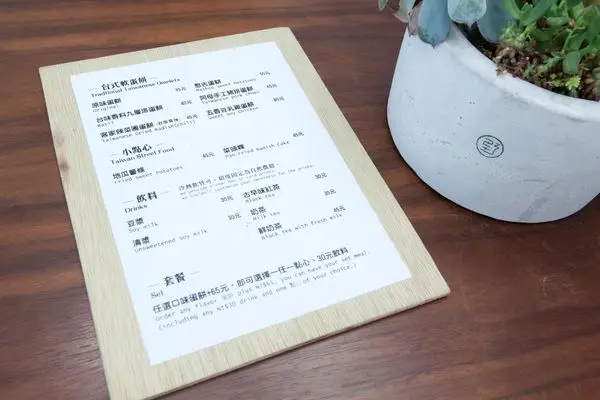 台式軟蛋餅
Traditional Taiwanese Omelets
原味蛋餅 45元
Original
台味香料九層塔蛋餅 45元
Basil
客家辣菜圃蛋餅 45元
Taiwanese Dried Radish(chili)
起吉蛋餅 55元
Mashed Sweet Potatoes
阿母手工豬排蛋餅
Taiwanese Pork Chops
五香豆乳雞蛋餅
Sweet Soy Chicken
小點心
Taiwan Street Food
地瓜薯條 45元
Fried Sweet Potatoes
菜頭粿 45元
Pan-Fried Radish Cake
飲料
Drinks
豆漿 30元
Soy milk
清漿 30元
Unsweetened Soy milk
古早味紅茶 30元
Black tea
奶茶
Milk tea
鮮奶茶 45元
Black tea with fresh milk
套餐
Set
任選口味蛋餅+65元,即可選擇一任一點心、30元飲料
Order any flavor 蛋餅 plus NT$65, you can have your set meal
(including any NT$30 drink and one 點心 of your choice.)